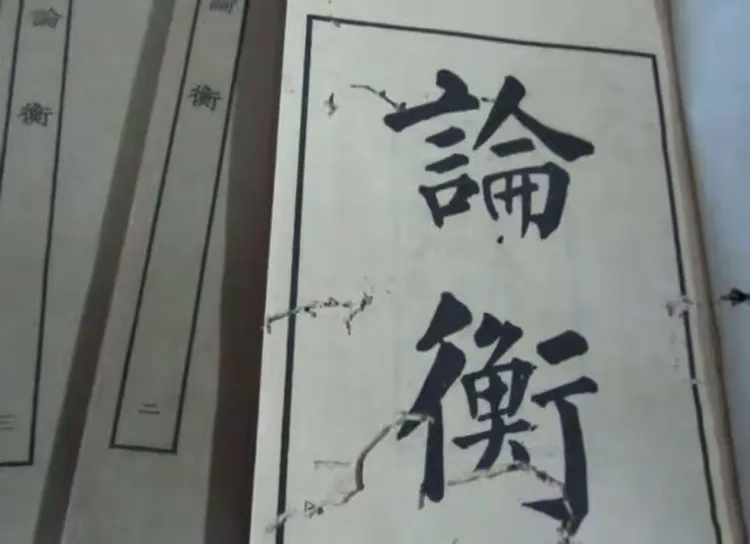 論衡
論衡
二
論衡
三